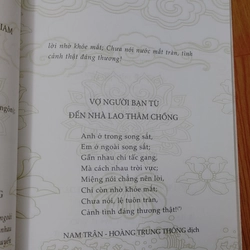 lời nhờ khóe mắt; Chưa nói nước mắt tràn, tình
cảnh thật đáng thương!
VỢ NGƯỜI BẠN TÙ
ĐẾN NHÀ LAO THĂM CHỒNG
Anh ở trong song sắt,
Em ở ngoài song sắt;
Gần nhau chỉ tấc gang,
Mà cách nhau trời vực;
Miệng nói chẳng nên lời,
Chỉ còn nhờ khóe mắt;
Chưa nói, lệ tuôn tràn,
Cảnh tình đáng thương thật!
NAM TRÂN - HOÀNG TRUNG THÔNG dịch